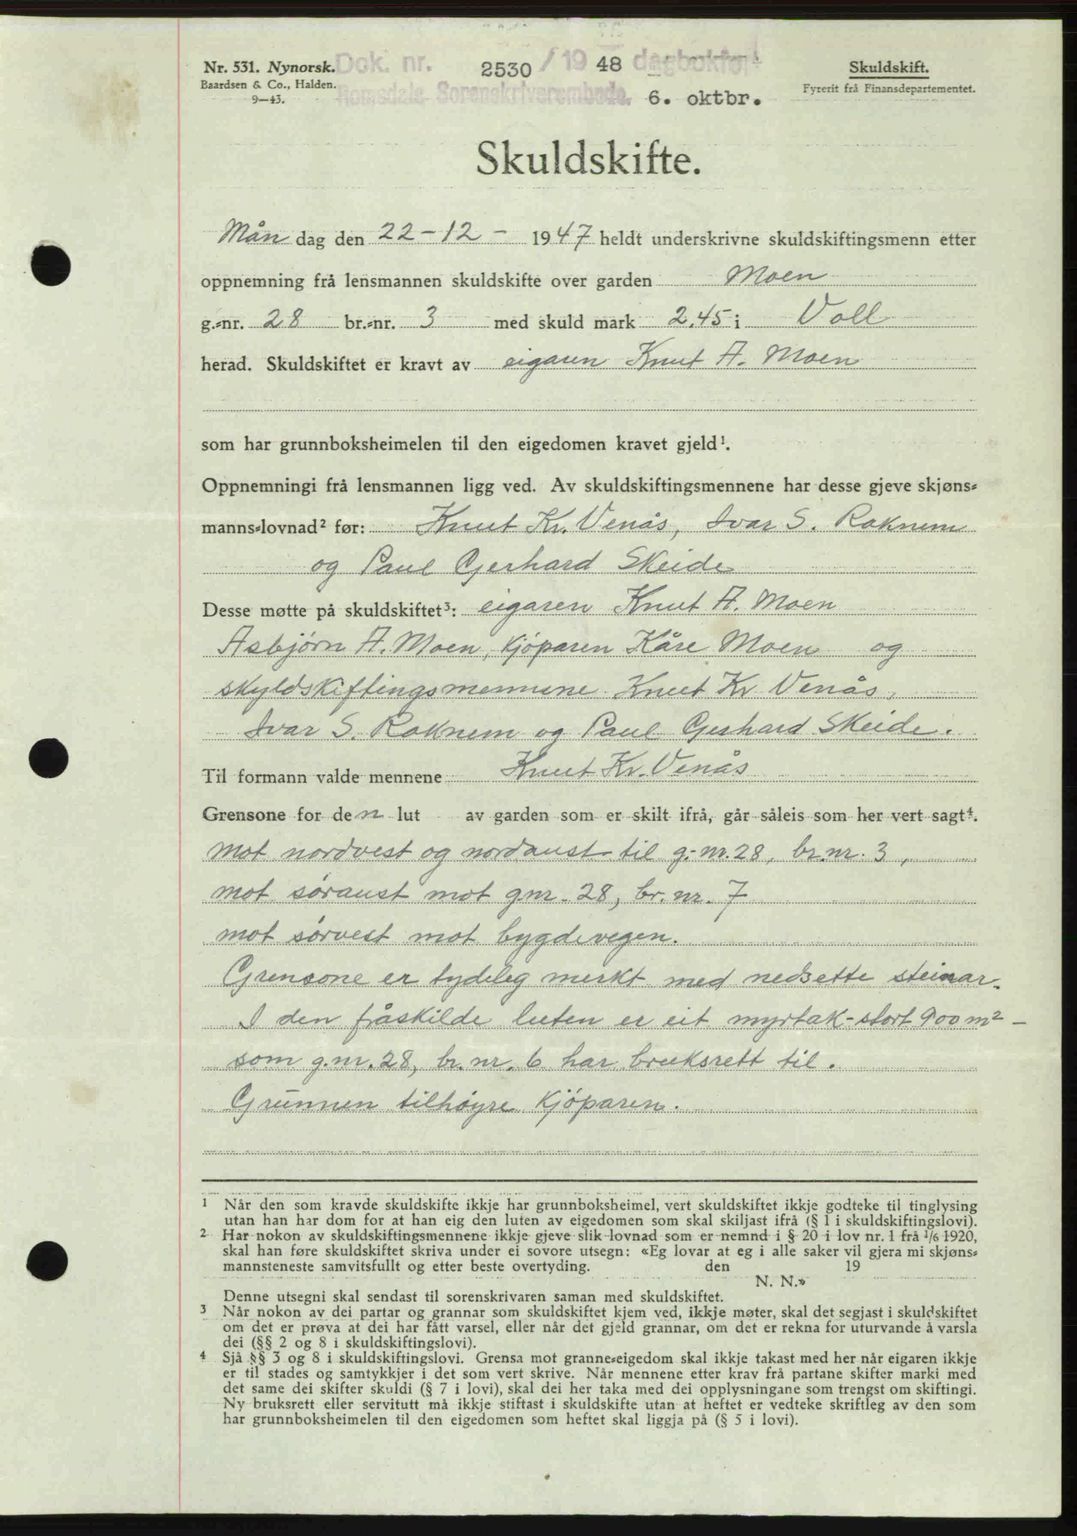 Nr. 531. Nynorsk.
Baardsen & Co., Halden.
9—43.
Dok. nr. 2530 / 19 48 dagbokført
Romsdals Sorenskriverembede. 6. oktbr.
Skuldskift.
Fyrerit frå Finansdepartementet.
Skuldskifte.
Mån dag den 22-12- 1947 heldt underskrivne skuldskiftingsmenn etter
oppnemning frå lensmannen skuldskifte over garden Moen
g.=nr. 28 br.=nr. 3 med skuld mark 2,45 i Voll
herad. Skuldskiftet er kravt av eigaren Knut A. Moen
som har grunnboksheimelen til den eigedomen kravet gjeld¹.
Oppnemningi frå lensmannen ligg ved. Av skuldskiftingsmennene har desse gjeve skjøns=
manns=lovnad² før: Knut Kr. Venås, Ivar S. Roknem
og Paul Gerhard Skeide
Desse møtte på skuldskiftet³: eigaren Knut A. Moen
Asbjørn A. Moen, kjöparen Kåre Moen og
skyldskiftingsmennene Knut Kr Venås,
Ivar S. Roknem og Paul Gerhard Skeide.
Til formann valde mennene Knut Kr. Venås
Grensone for den lut av garden som er skilt ifrå, går såleis som her vert sagt⁴.
mot nordvest og nordaust til g.nr. 28, br.nr. 3,
mot søraust mot gnr. 28, br. nr. 7
mot sørvest mot bygdevegen.
Grensone er tydeleg merkt med nedsette steinar.
I den fråskilde luten er eit myrtak - stort 900 m² -
som g.nr. 28, br. nr. 6 har bruksrett til.
Grunnen tilhøyre kjöparen.
¹ Når den som kravde skuldskifte ikkje har grunnboksheimel, vert skuldskiftet ikkje godteke til tinglysing
utan han har dom for at han eig den luten av eigedomen som skal skiljast ifrå (§ 1 i skuldskiftingslovi).
² Har nokon av skuldskiftingsmennene ikkje gjeve slik lovnad som er nemnd i § 20 i lov nr. 1 frå 1/6 1920,
skal han føre skuldskiftet skriva under ei sovore utsegn: «Eg lovar at eg i alle saker vil gjera mi skjøns=
mannsteneste samvitsfullt og etter beste overtyding. den 19
N. N.»
Denne utsegni skal sendast til sorenskrivaren saman med skuldskiftet.
³ Når nokon av dei partar og grannar som skuldskiftet kjem ved, ikkje møter, skal det segjast i skuldskiftet
om det er prøva at dei har fått varsel, eller når det gjeld grannar, om det er rekna for uturvande å varsla
dei (§§ 2 og 8 i skuldskiftingslovi).
⁴ Sjå §§ 3 og 8 i skuldskiftingslovi. Grensa mot granne=eigedom skal ikkje takast med her når eigaren ikkje
er til stades og samtykkjer i det som vert skrive. Når mennene etter krav frå partane skifter marki med
det same dei skifter skuldi (§ 7 i lovi), skal dei her taka med dei opplysningane som trengst om skiftingi.
Ny bruksrett eller servitutt må ikkje stiftast i skuldskifte utan at heftet er vedteke skriftleg av den som
har grunnboksheimelen til den eigedomen som heftet skal liggja på (§ 5 i lovi).